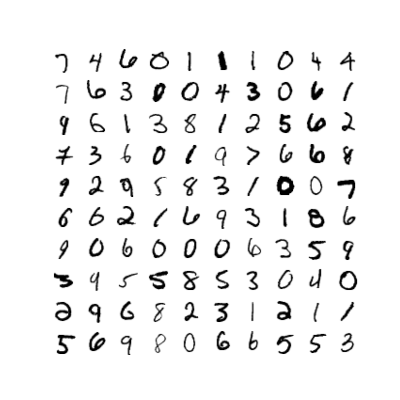 7 4 6 0 1 1 1 0 4 4
7 6 3 0 0 4 3 0 6 1
9 6 1 3 8 1 2 5 6 2
7 3 6 0 1 9 7 6 6 8
9 2 9 5 8 3 1 0 0 7
6 6 2 1 6 9 3 1 8 6
9 0 6 0 0 0 6 3 5 9
3 9 5 5 8 5 3 0 4 0
2 9 6 8 2 3 1 2 1 1
5 6 9 8 0 6 6 5 5 3